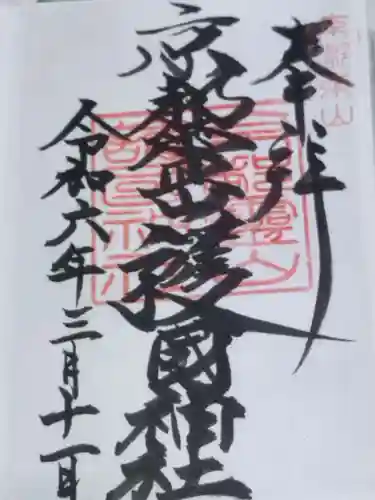 京都東山
奉拝
京都霊山護國神社
令和六年三月十一日